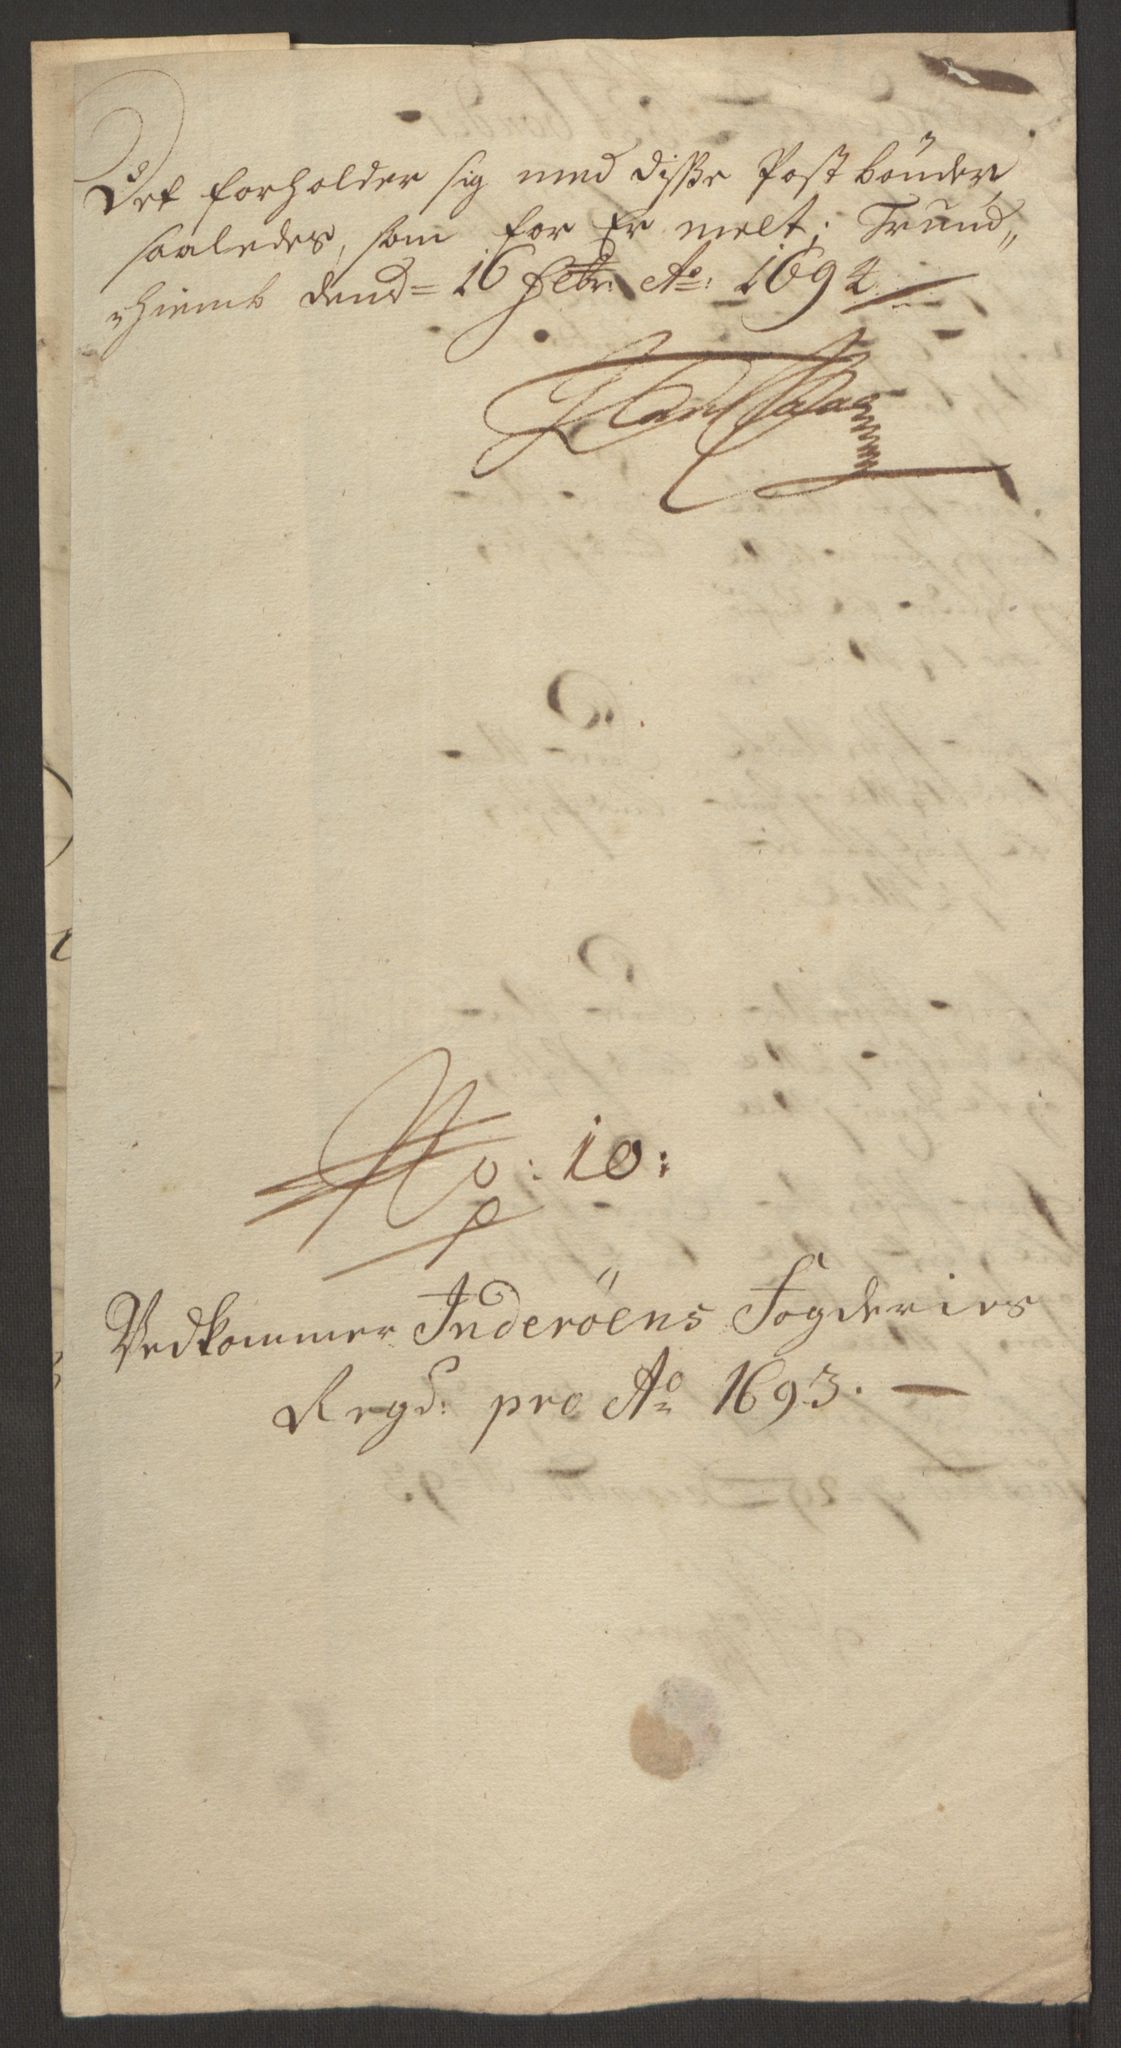 Det forholder sig med disse Postbönder,
saaledes, som for Er melt; Trund„
„hiemb dend= 16 Febr: Ao: 1694
No: 10:
Vedkommer Inderöens Fogderies
Regd: pro Ao 1693.